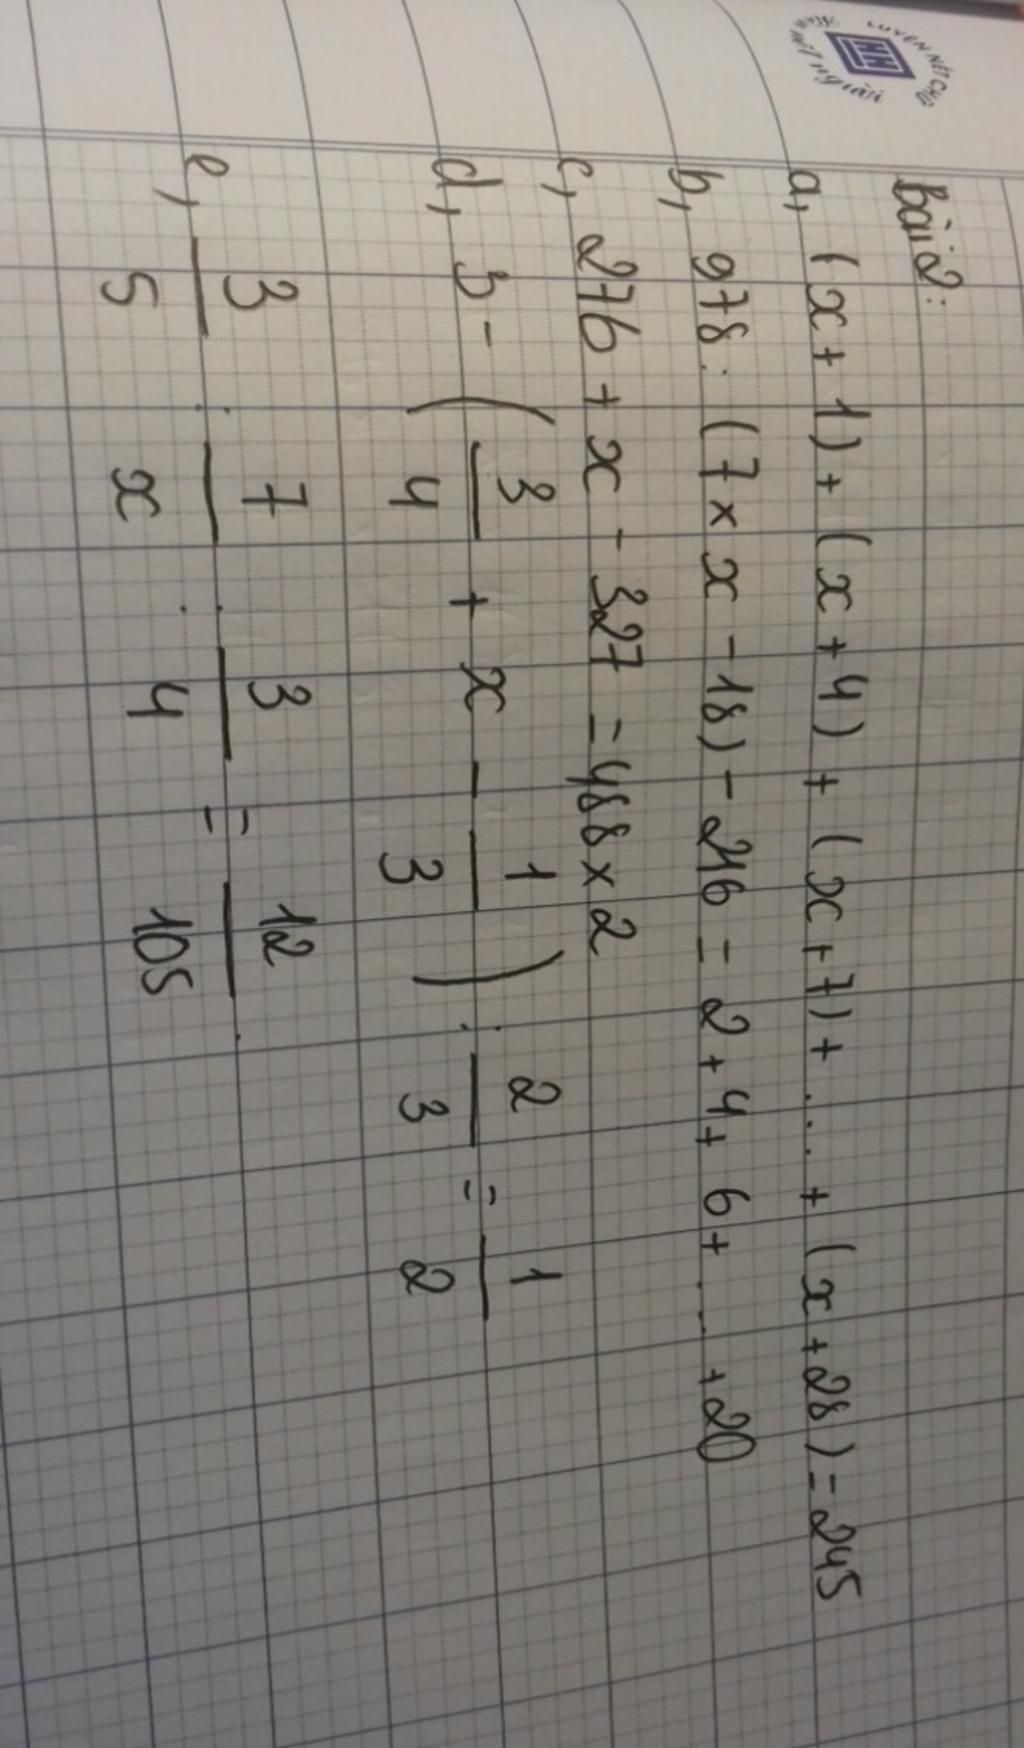 LUYỆN NÉT CHỮ
nết người
Bài 2:
a, (x + 1) + (x + 4) + (x + 7) + .... + (x + 28) = 245
b, 978 : (7 × x - 18) - 216 = 2 + 4 + 6 + ... + 20
c, 276 + x - 327 = 488 × 2
d, 3 - (3/4 + x - 1/3) : 2/3 = 1/2
e, 3/5 : 7/x : 3/4 = 12/105 .